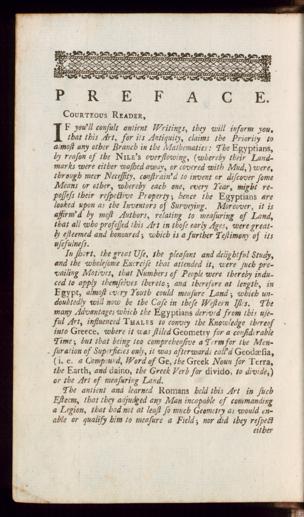 PREFACE.
COURTEOUS READER,
IF you'll consult antient Writings, they will inform you,
that this Art, for its Antiquity, claims the Priority to
almost any other Branch in the Mathematics: The Egyptians,
by reason of the NILE's overflowing, (whereby their Land-
marks were either washed away, or covered with Mud,) were,
through meer Necessity, constrain'd to invent or discover some
Means or other, whereby each one, every Year, might re-
possess their respective Property; hence the Egyptians are
looked upon as the Inventors of Surveying. Moreover, it is
affirm'd by most Authors, relating to measuring of Land,
that all who professed this Art in those early Ages, were great-
ly esteemed and honoured; which is a further Testimony of its
usefulness.
In short, the great Use, the pleasant and delightful Study,
and the wholesome Exercise that attended it, were such pre-
vailing Motives, that Numbers of People were thereby indu-
ced to apply themselves thereto; and therefore at length, in
Egypt, almost every Youth could measure Land; which un-
doubtedly will now be the Case in these Western Isles. The
many Advantages which the Egyptians derived from this use-
ful Art, influenced THALES to convey the Knowledge thereof
into Greece, where it was stiled Geometry for a considerable
Time; but that being too comprehensive a Term for the Men-
suration of Superficies only, it was afterwards called Geodæsia,
(i. e. a Compound, Word of Ge, the Greek Noun for Terra,
the Earth, and daino, the Greek Verb for divido, to divide,)
or the Art of measuring Land.
The antient and learned Romans held this Art in such
Esteem, that they adjudged any Man incapable of commanding
a Legion, that had not at least so much Geometry as would en-
able or qualify him to measure a Field; nor did they respect
either